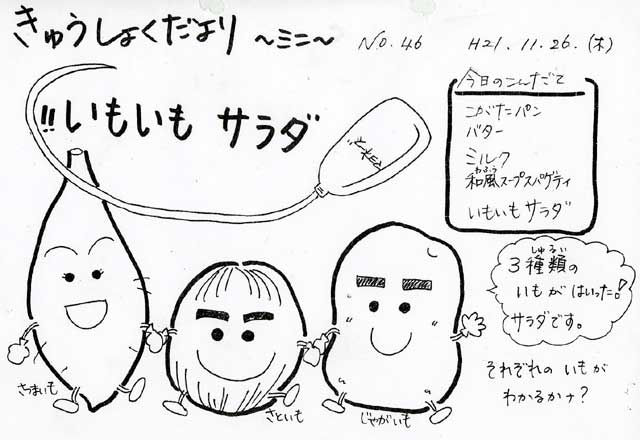 きゅうしょくだより ～ミニ～ No.46 H21.11.26.(木)
!!いもいも サラダ
今日のこんだて
こがたパン
バター
ミルク
和風スープスパゲティ
わふう
いもいもサラダ
3種類の
しゅるい
いもがはいった!
サラダです。
それぞれの いもが
わかるかナ?
さつまいも
さといも
じゃがいも